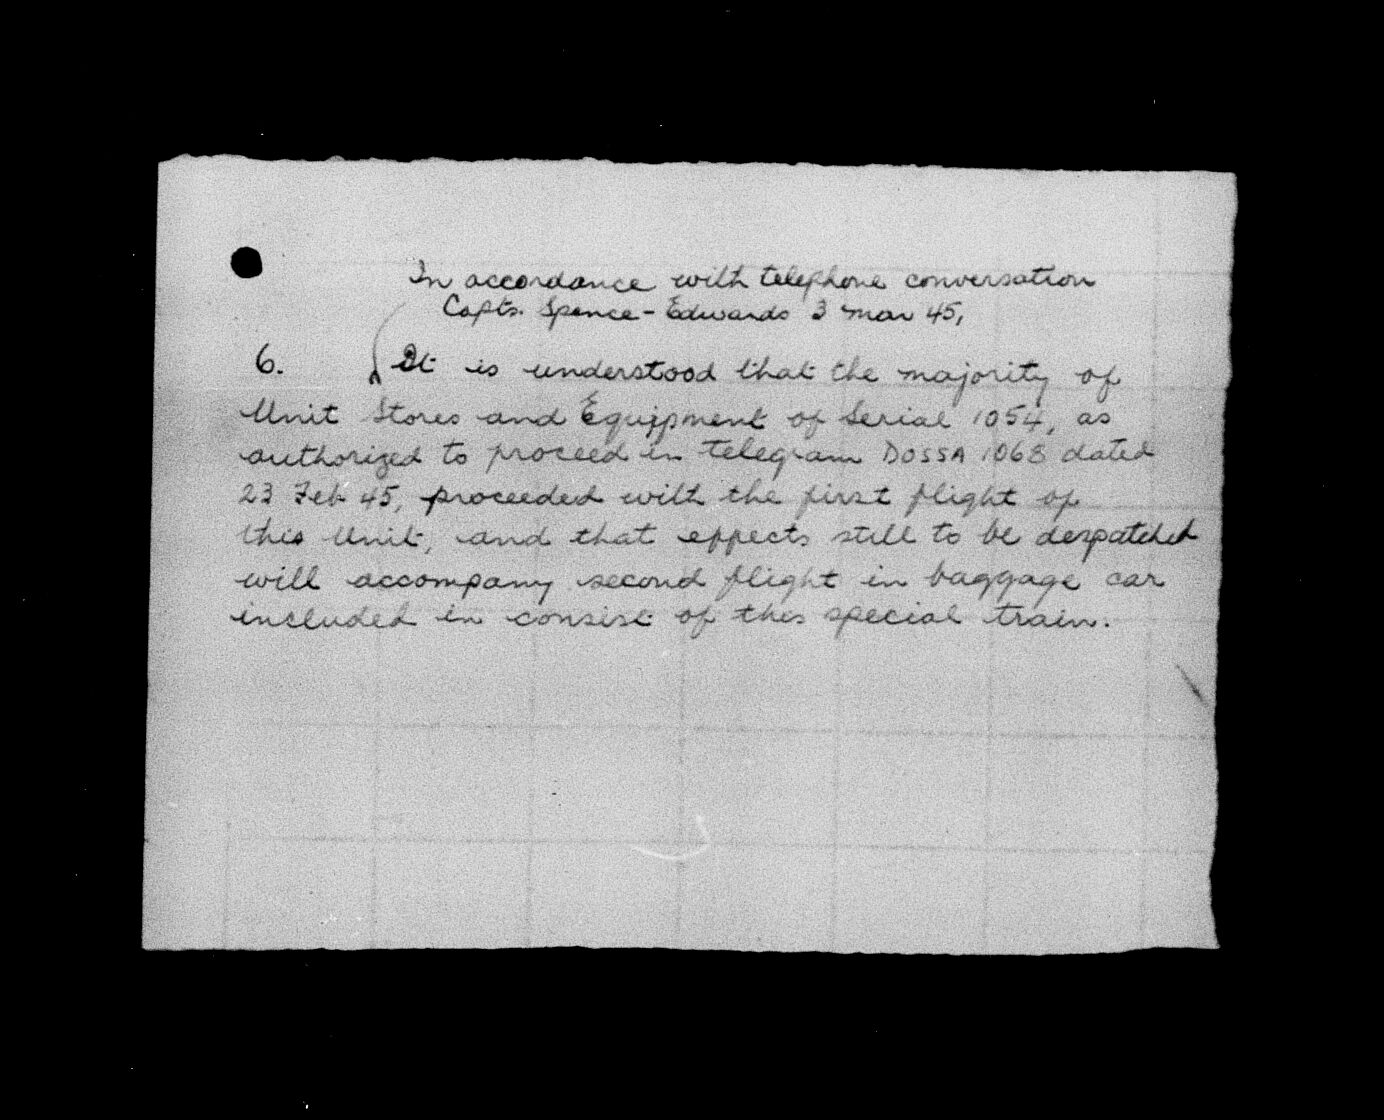 In accordance with telephone conversation
Capts. Spence-Edwards 3 Mar 45,
6. It is understood that the majority of
Unit Stores and Equipment of Serial 1054, as
authorized to proceed in telegram DOSSA 1068 dated
23 Feb 45, proceeded with the first flight of
this Unit, and that effects still to be despatched
will accompany second flight in baggage car
included in consist of this special train.